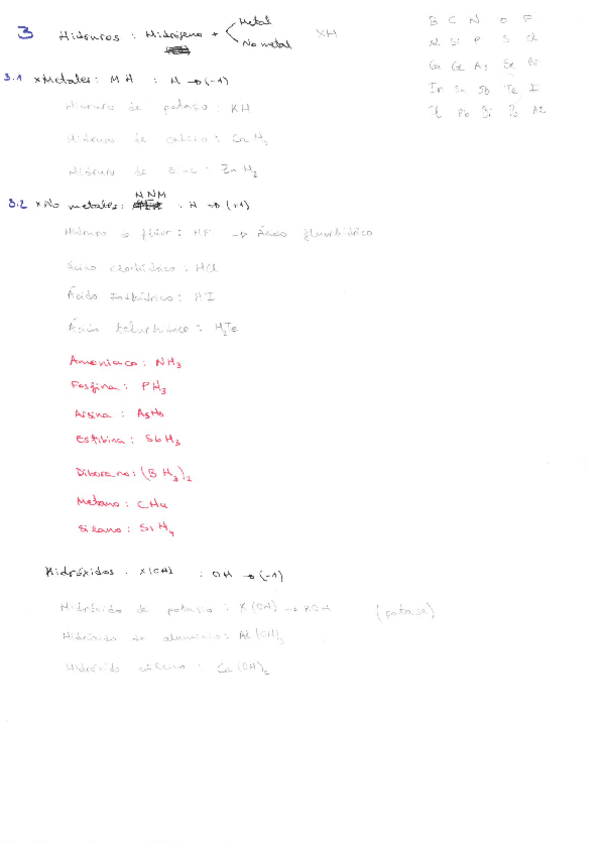 3 Hidruros : Hidrógeno + Metal
No metal
XH
B C N O F
Al Si P S Cl
Ga Ge As Se Br
In Sn Sb Te I
Tl Pb Bi Po At
3.1 x Metales : MH : H → (-1)
Hidruro de potasio : KH
Hidruro de calcio : CaH2
Hidruro de zinc : ZnH2
3.2 x No metales : HNM : H → (+1)
Hidruro flúor : HF → Ácido fluorhídrico
Ácido clorhídrico : HCl
Ácido Iodhídrico :
Ácido telurhídrico : H2Te
Amoniaco : NH3
Fosfina : PH3
Arsina : AsH3
Estibina : SbH3
Diborano : (BH3)2
Metano : CH4
Silano : SiH4
Hidróxidos : X(OH) : OH → (-1)
Hidróxido de potasio : K(OH) → KOH (potasa)
Hidróxido de aluminio : Al(OH)3
Hidróxido cálcico : Ca(OH)2